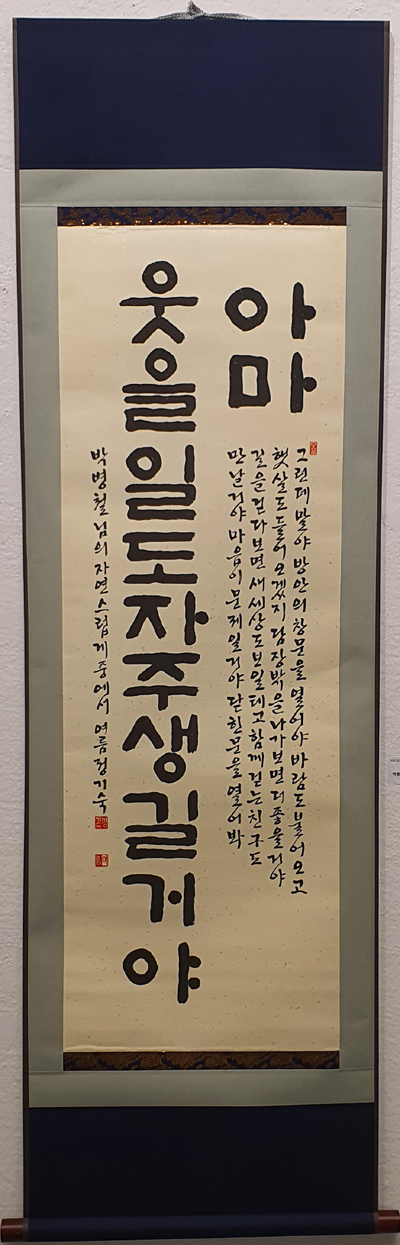 아마
웃을일도자주생길거야
그런데 말야 방안의 창문을 열어야 바람도 불어 오고
햇살도 들어 오겠지 담장밖을 나가보면 더 좋을거야
길을 걷다보면 새세상도 보일테고 함께 걷는 친구도
만날거야 마음이 문제일거야 닫힌 문을 열어 봐
박병철님의 자연스럽게 중에서 여름 정기숙